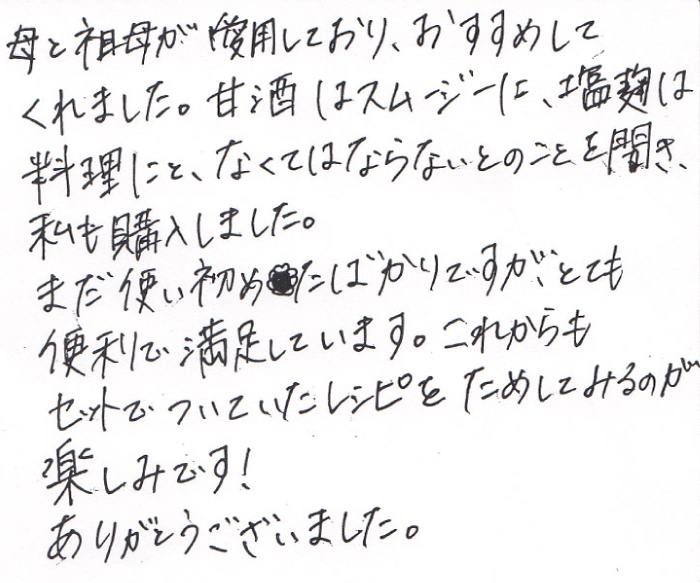 母と祖母が愛用しており、おすすめして
くれました。甘酒はスムージーに、塩麹は
料理にと、なくてはならないとのことを聞き、
私も購入しました。
まだ使い初めたばかりですが、とても
便利で満足しています。これからも
セットでついていたレシピをためしてみるのが
楽しみです!
ありがとうございました。